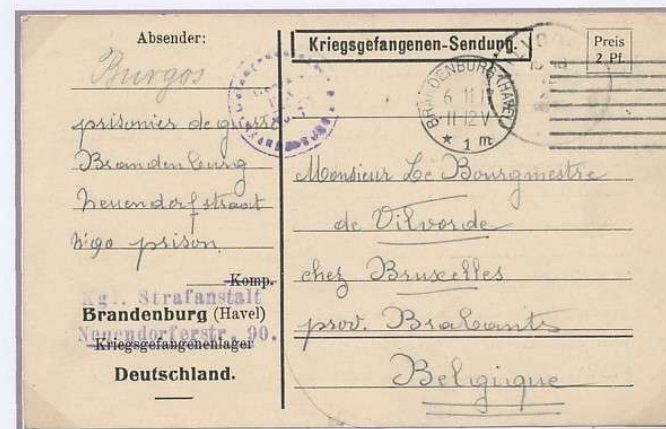 Absender:
Burgos
prisonier de guerre
Brandenburg
Neuendorfstraat
N: 90 prison
Komp.
Kgl. Strafanstalt
Brandenburg (Havel)
Neuendorferstr. 90.
Kriegsgefangenenlager
Deutschland.
Kriegsgefangenen-Sendung.
Preis
2 Pf.
BRANDENBURG (HAVEL)
11-12 V
* 1 m
Monsieur Le Bourgmestre
de Vilvorde
chez Bruxelles
prov. Brabants
Belgique